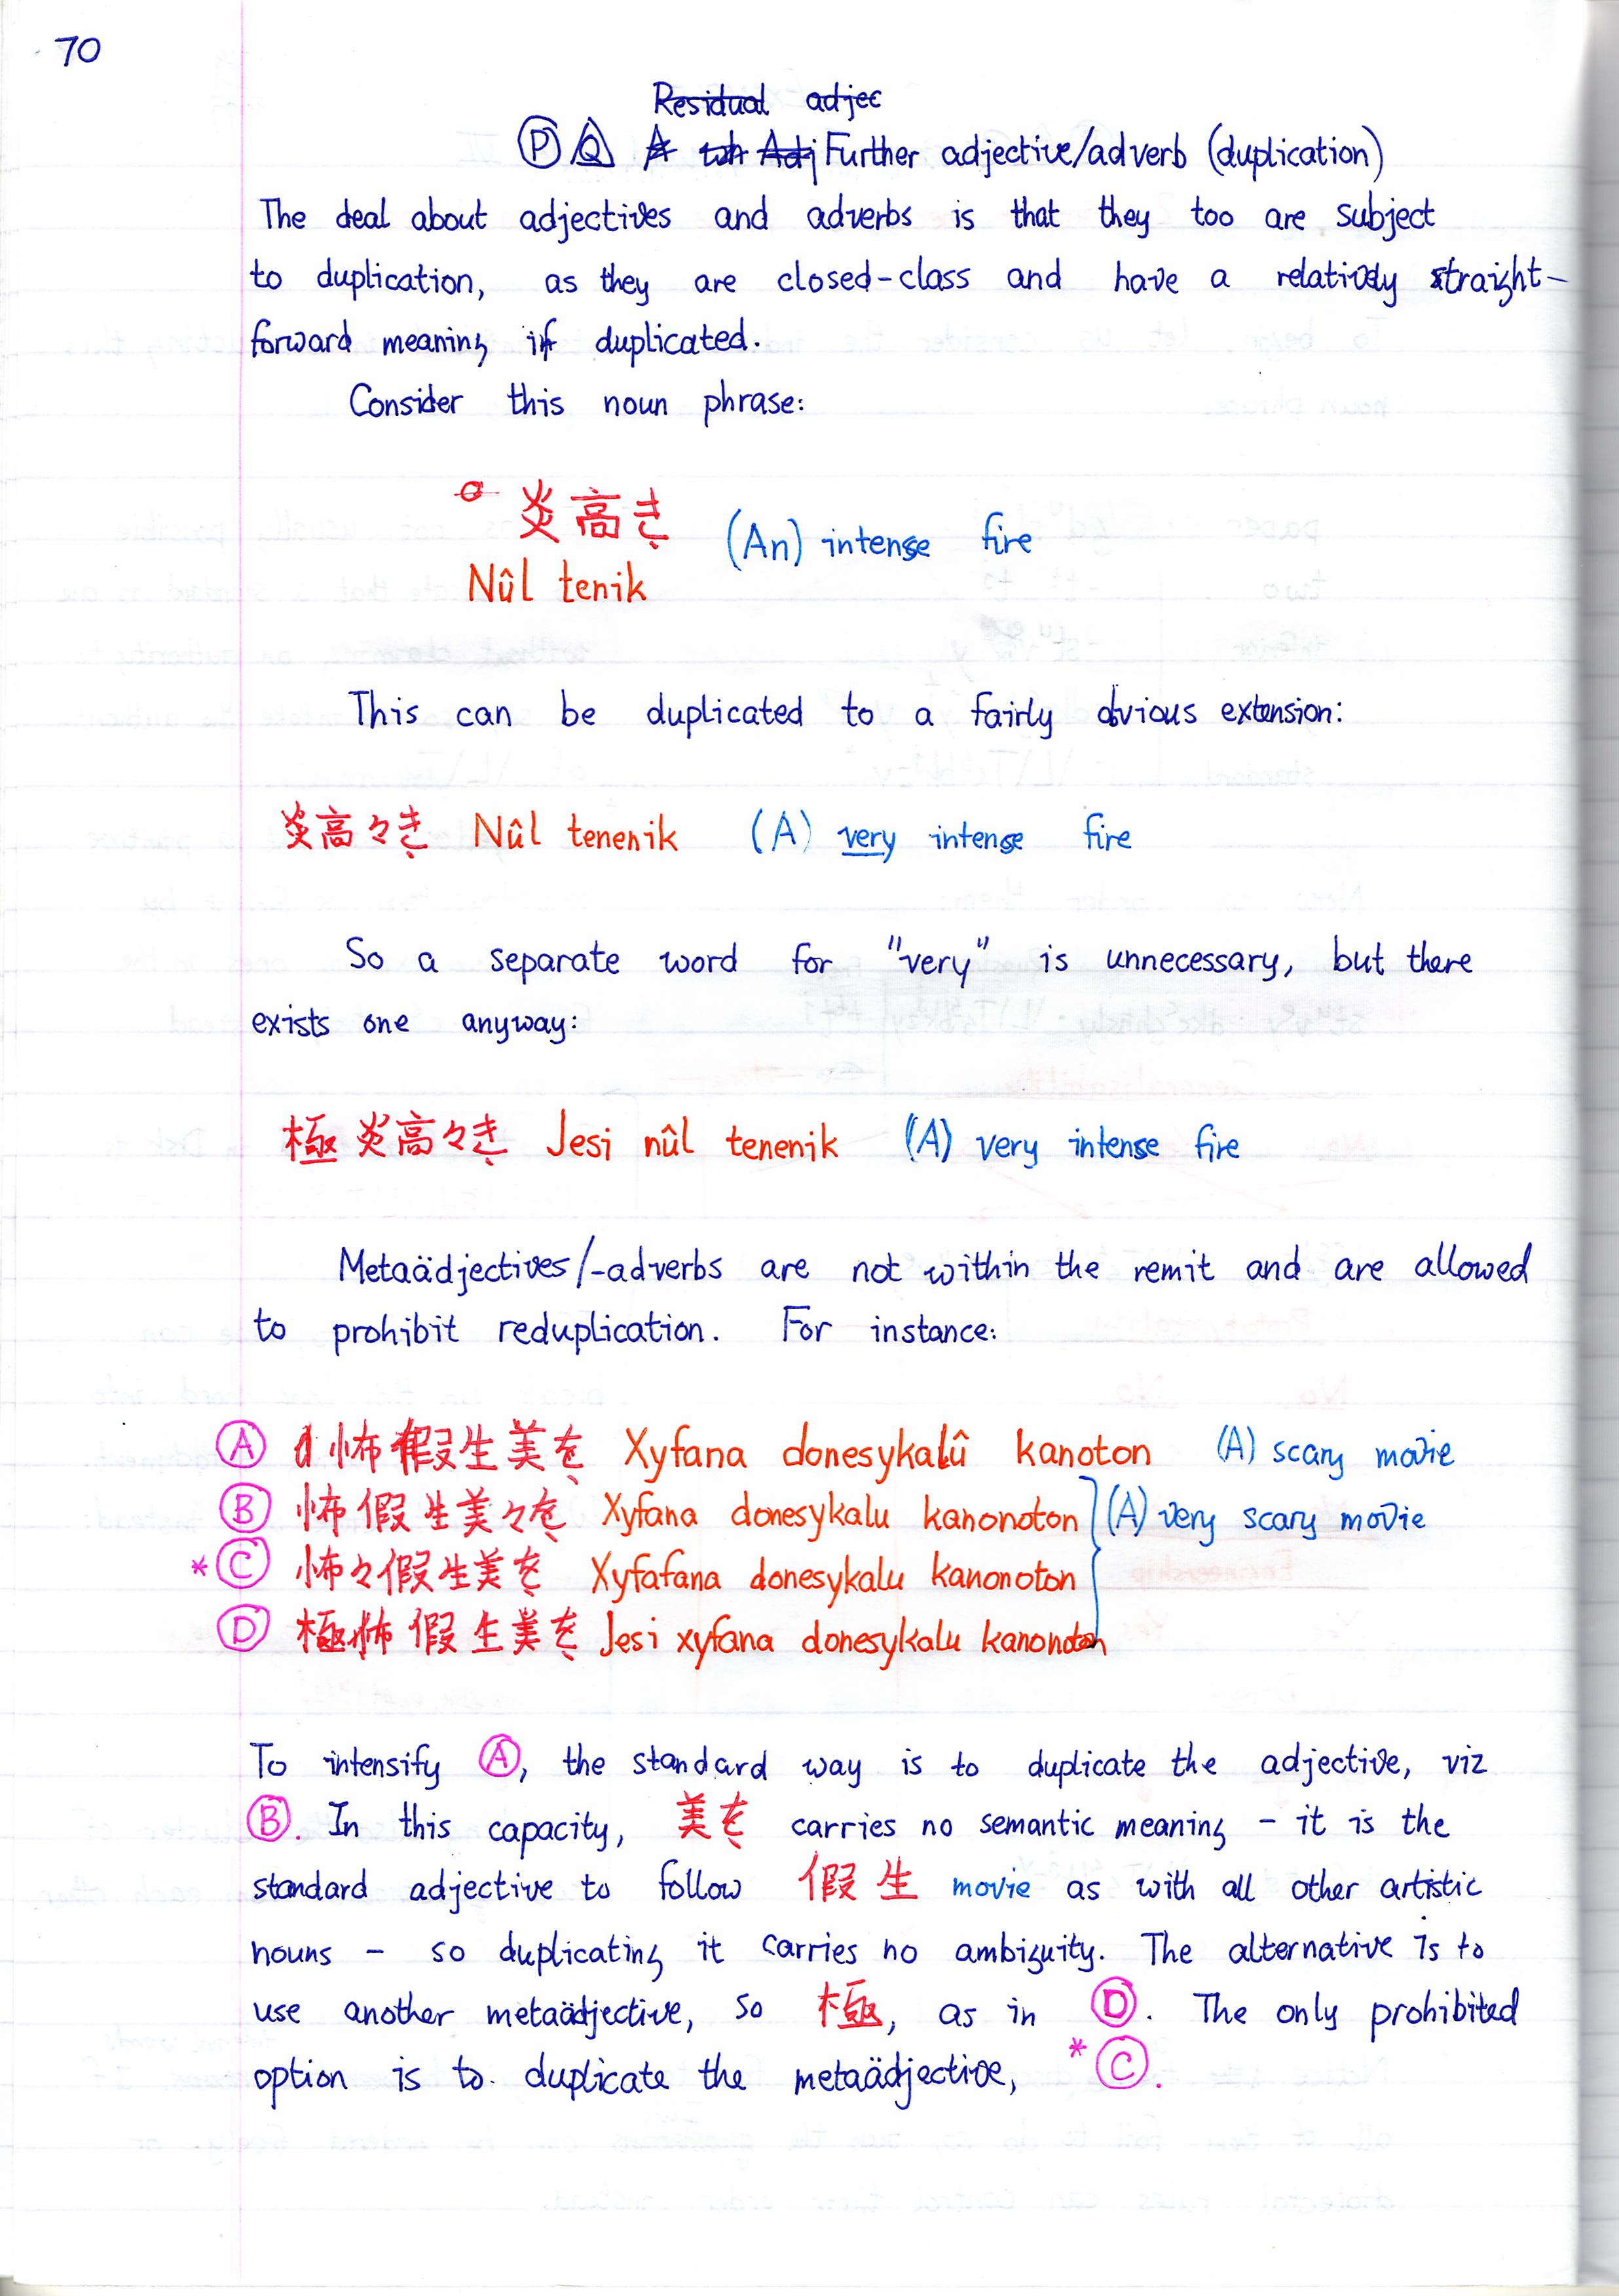 70
Residual adjec
P Q Further adjective/adverb (duplication)
The deal about adjectives and adverbs is that they too are subject
to duplication, as they are closed-class and have a relatively straight-
forward meaning if duplicated.
Consider this noun phrase:
炎高き (An) intense fire
Nûl tenik
This can be duplicated to a fairly obvious extension:
炎高々き Nûl tenenik (A) very intense fire
So a separate word for "very" is unnecessary, but there
exists one anyway:
極炎高々き Jesi nûl tenenik (A) very intense fire
Metaädjectives/-adverbs are not within the remit and are allowed
to prohibit reduplication. For instance:
A 怖假生美を Xyfana donesykalû kanoton (A) scary movie
B 怖假生美々を Xyfana donesykalu kanonoton (A) very scary movie
*C 怖々假生美を Xyfafana donesykalu kanonoton
D 極怖假生美を Jesi xyfana donesykalu kanonoton
To intensify A, the standard way is to duplicate the adjective, viz
B. In this capacity, 美を carries no semantic meaning – it is the
standard adjective to follow 假生 movie as with all other artistic
nouns – so duplicating it carries no ambiguity. The alternative is to
use another metaädjective, so 極, as in D. The only prohibited
option is to duplicate the metaädjective, *C.